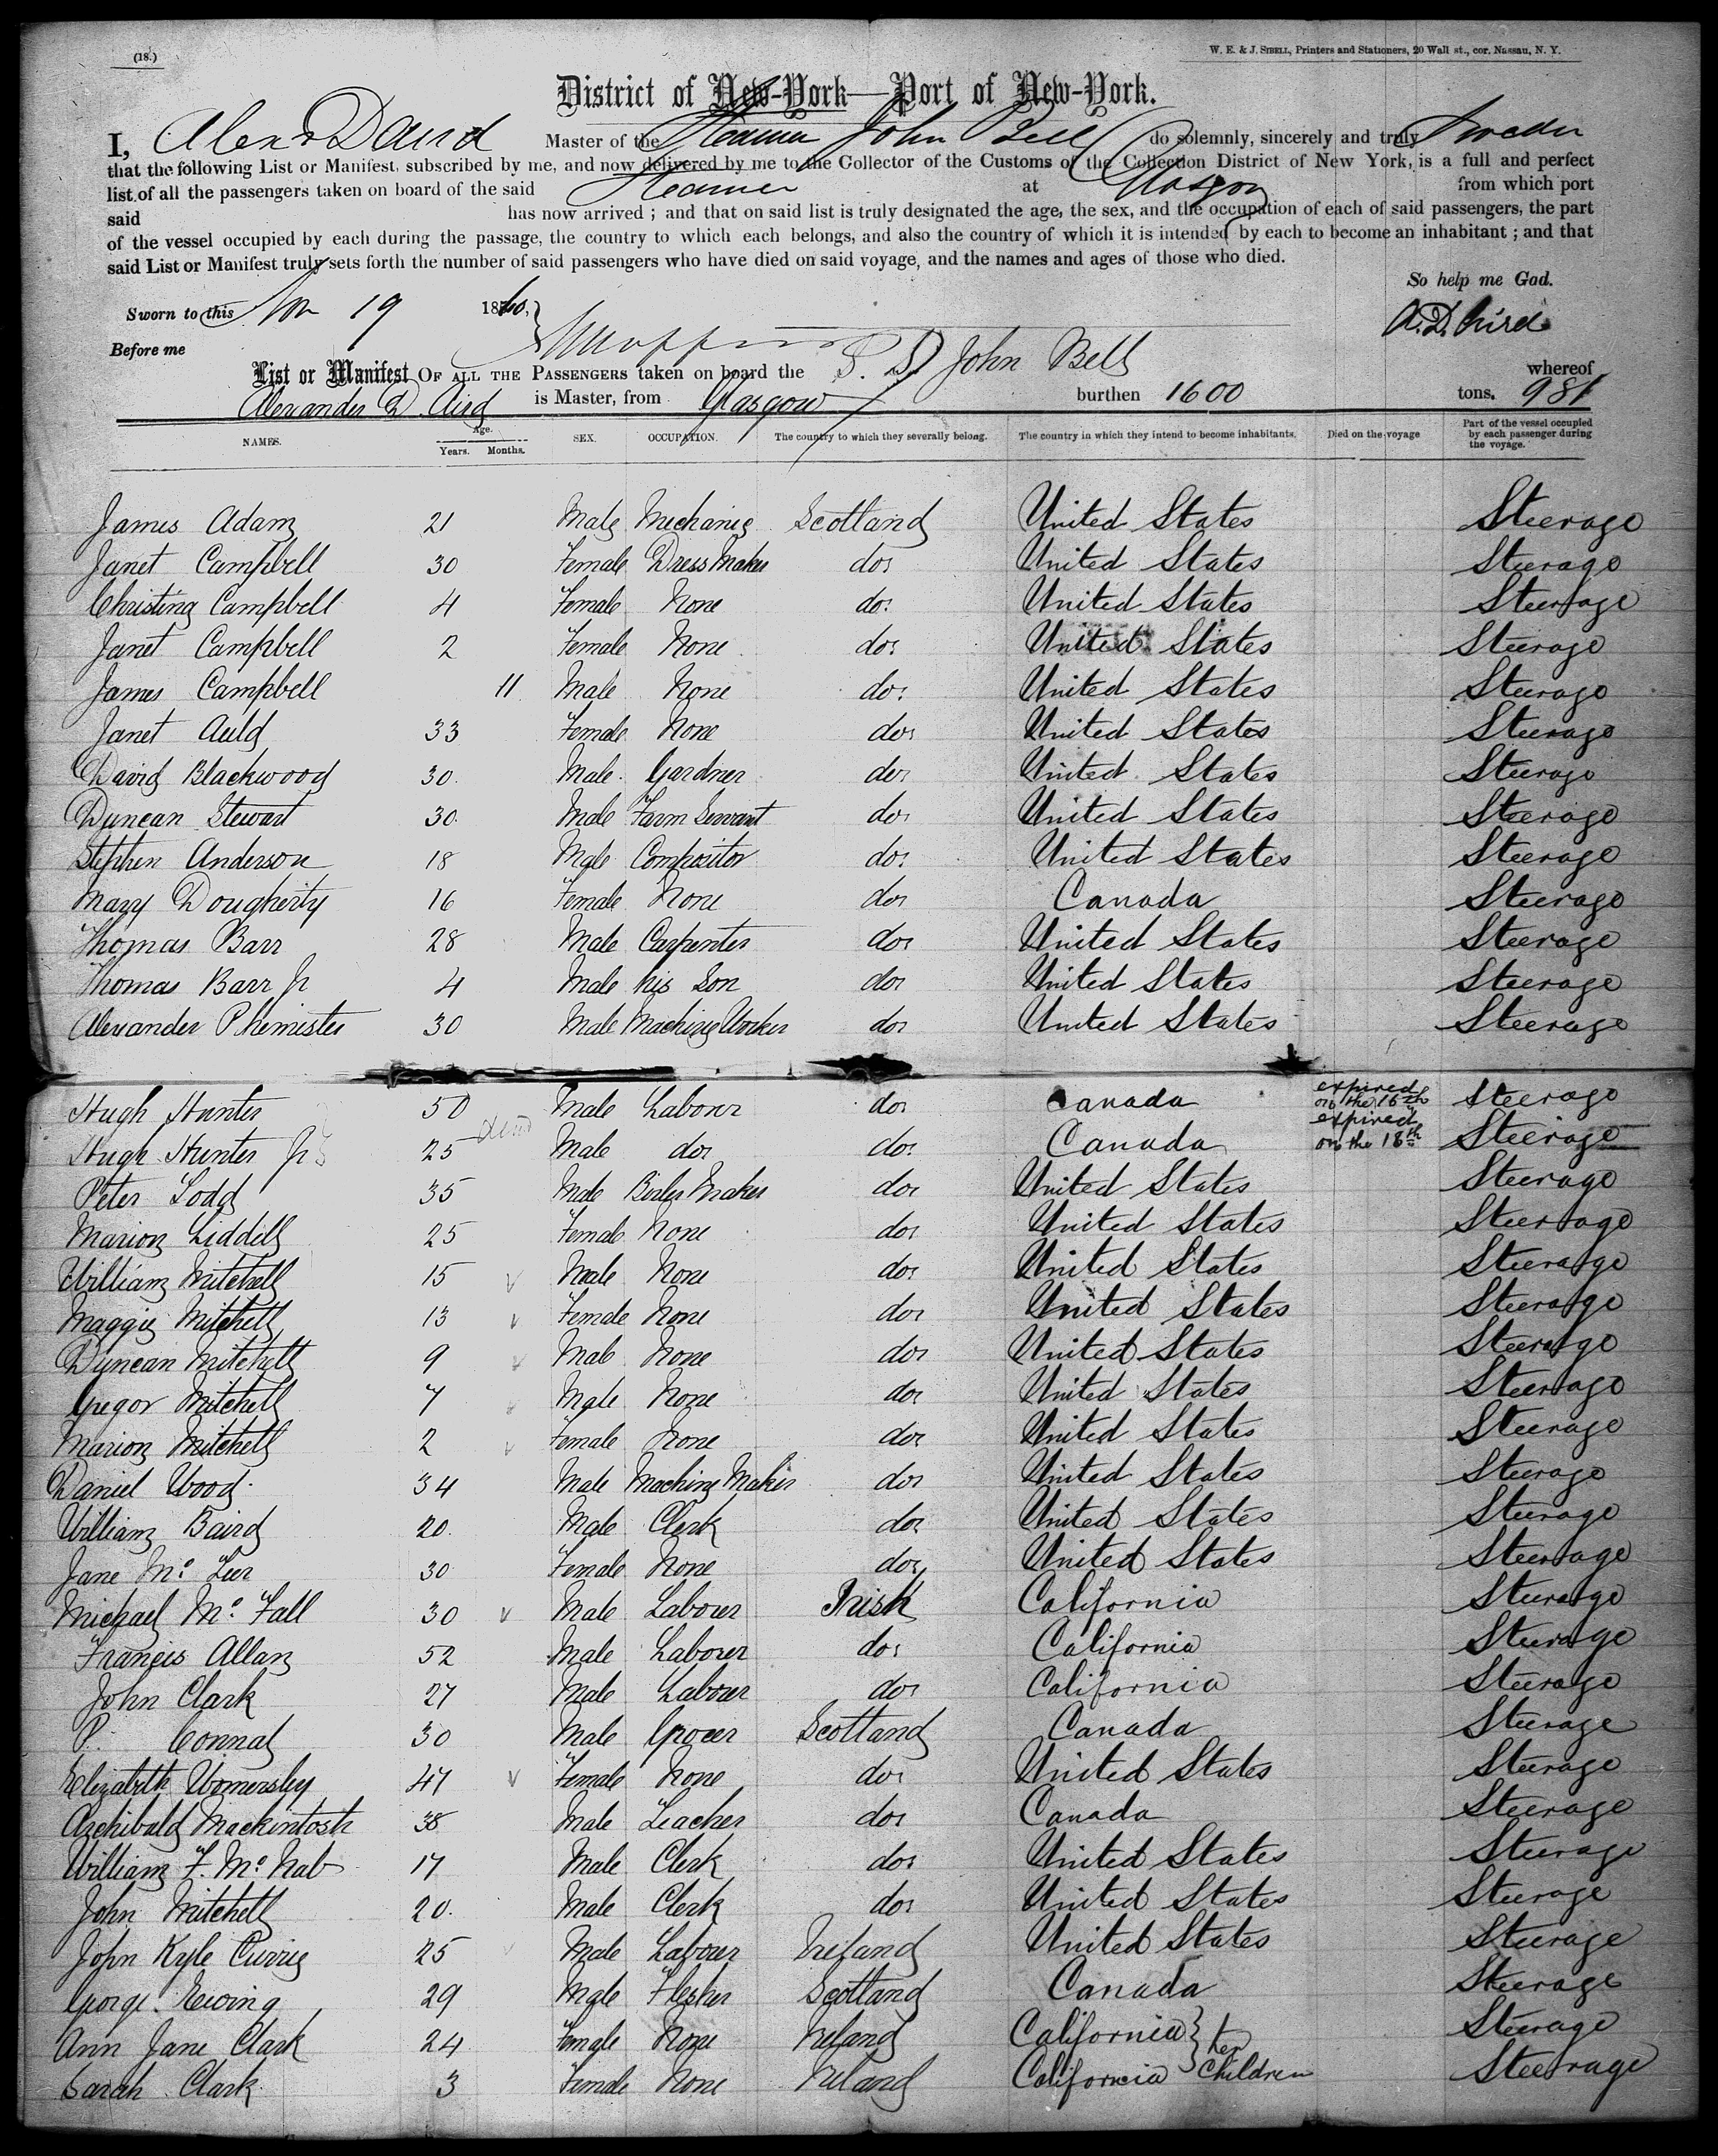 (18.)
W. E. & J. SIBELL, Printers and Stationers, 20 Wall st., cor. Nassau, N. Y.
District of New-York—Port of New-York.
I, Master of the Steamer John Bell do solemnly, sincerely and truly Swear
that the following List or Manifest, subscribed by me, and now delivered by me to the Collector of the Customs of the Collection District of New York, is a full and perfect
list of all the passengers taken on board of the said Steamer at Glasgow from which port
said has now arrived ; and that on said list is truly designated the age, the sex, and the occupation of each of said passengers, the part
of the vessel occupied by each during the passage, the country to which each belongs, and also the country of which it is intended by each to become an inhabitant ; and that
said List or Manifest truly sets forth the number of said passengers who have died on said voyage, and the names and ages of those who died.
So help me God.
Sworn to this Nov 19 18
Before me
List or Manifest OF ALL THE PASSENGERS taken on board the S. S. John Bell whereof
Alexander D. Aird is Master, from Glasgow burthen 1600 tons. 981
NAMES. Age. Years. Months. SEX. OCCUPATION. The country to which they severally belong. The country in which they intend to become inhabitants. Died on the voyage Part of the vessel occupied by each passenger during the voyage.
James Adam 21 Male Mechanic Scotland United States Steerage
Janet Campbell 30 Female Dress Maker do. United States Steerage
Christina Campbell 4 Female None do. United States Steerage
Janet Campbell 2 Female None do. United States Steerage
James Campbell 11 Male None do. United States Steerage
Janet Auld 33 Female None do. United States Steerage
David Blackwood 30 Male Gardner do. United States Steerage
Duncan Stewart 30 Male Farm Servant do. United States Steerage
Stephen Anderson 18 Male Compositor do. United States Steerage
Mary Dougherty 16 Female None do. Canada Steerage
Thomas Barr 28 Male Carpenter do. United States Steerage
Thomas Barr Jr 4 Male his Son do. United States Steerage
Alexander Phemister 30 Male Machine Worker do. United States Steerage
Hugh Hunter 50 Male Laborer do. Canada expired on the 16th Steerage
Hugh Hunter Jr 25 Male do. do. Canada expired on the 18th Steerage
Peter Todd 35 Male Boiler Maker do. United States Steerage
Marion Liddell 25 Female None do. United States Steerage
William Mitchell 15 Male None do. United States Steerage
Maggie Mitchell 13 Female None do. United States Steerage
Duncan Mitchell 9 Male None do. United States Steerage
Gregor Mitchell 7 Male None do. United States Steerage
Marion Mitchell 2 Female None do. United States Steerage
Daniel Wood 34 Male Machine Maker do. United States Steerage
William Baird 20 Male Clerk do. United States Steerage
Jane Mc 30 Female None do. United States Steerage
Michael Mc Fall 30 Male Laborer Irish California Steerage
Francis Allan 52 Male Laborer do. California Steerage
John Clark 27 Male Laborer do. California Steerage
P. Connal 30 Male Grocer Scotland Canada Steerage
Elizabeth Womersley 47 Female None do. United States Steerage
Archibald Mackintosh 38 Male Teacher do. Canada Steerage
William F. Mc Nab 17 Male Clerk do. United States Steerage
John Mitchell 20 Male Clerk do. United States Steerage
John Kyle Currie 25 Male Laborer Ireland United States Steerage
George Ewing 29 Male Flesher Scotland Canada Steerage
Ann Jane Clark 24 Female None Ireland California Steerage
Sarah Clark 3 Female None Ireland California Children Steerage